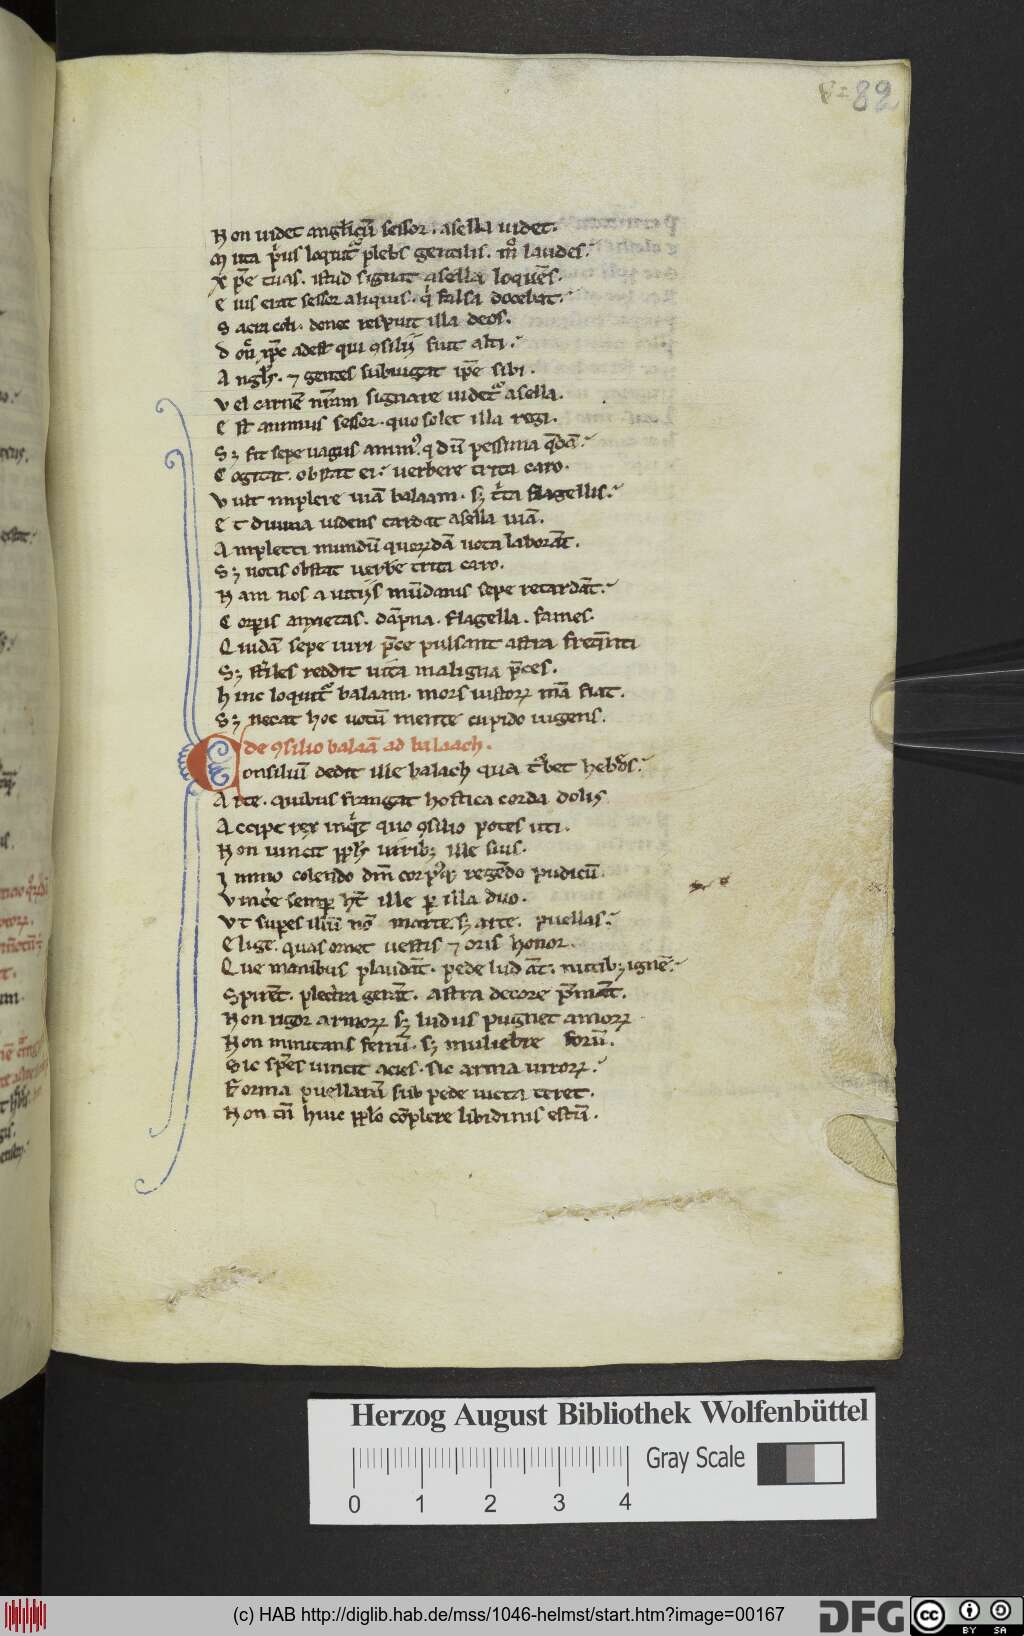 82
Non uidet angelicū sessor. asella uidet.
M uta pͥus loquitᷣ plebs gentilis. m̊ laudes.
X pē tuas. istud signat asella loquēs.
E ius erat sessor aliquis. qͥ falsa docebat.
S acra coli. donec respuit illa deos.
adest qui ꝯsilij fuit alti.
A nglꝰ. ⁊ gentes subiugat ipē sibi.
V el carnē nr̄am signare uidetᷣ asella.
E st animus sessor. quo solet illa regi.
Sꝫ fit sepe uagus animꝰ. q dū pessima q̄dā.
C ogitat. obstat ei. uerbere trita caro.
V ult implere uiā balaam. sꝫ tͥta flagellis.
E t diuina uidens cardat asella uiā.
A mplecti mundū quorꝝdā uota laborāt.
Sꝫ uotis obstat uerbē trita caro.
N am nos a uitijs mūdanis sepe retardāt.
C orꝑis anxietas. dāpna. flagella. fames.
Q uidā sepe uiri p̄ce pulsant astra freq̄nti
Sꝫ st̄iles reddit uita maligna p̄ces.
H inc loquitᷣ balaam. mors iustorꝝ m̄a fiat.
Sꝫ necat hoc uotū mente cupido uigens.
de ꝯsilio balaā ad balaach.
C onsiliū dedit ille balach qua tᷣbet hebͦs.
A rte. quibus frangat hostica corda dolis
A ccipe rex inqͥt quo ꝯsilio potes uti.
N on uincit pplꝰ uiribꝫ ille suis.
I mmo colendo dm̄ corpꝰqꝫ regēdo pudicū.
V inc̄e semꝑ hꝫ ille ꝑ illa duo.
V t supes illū nō marte. sꝫ arte. puellas.
E lige. quas ornet uestis ⁊ oris honor.
Q ue manibus plaudāt. pede ludāt. nutibꝫ ignē.
S pirēt. plectra gerāt. astra decore p̄māt.
N on rigor armorꝝ sꝫ ludus pugnet amorꝝ
N on minitans ferrū. sꝫ muliebre forū.
S ic sp̄es uincit acies. sic arma uirorꝝ.
F orma puellarū sub pede uicta teret.
N on tn̄ huic pplo cōplere libidinis estū.
Herzog August Bibliothek Wolfenbüttel
Gray Scale
0 1 2 3 4
(c) HAB http://diglib.hab.de/mss/1046-helmst/start.htm?image=00167
DFG
CC BY SA